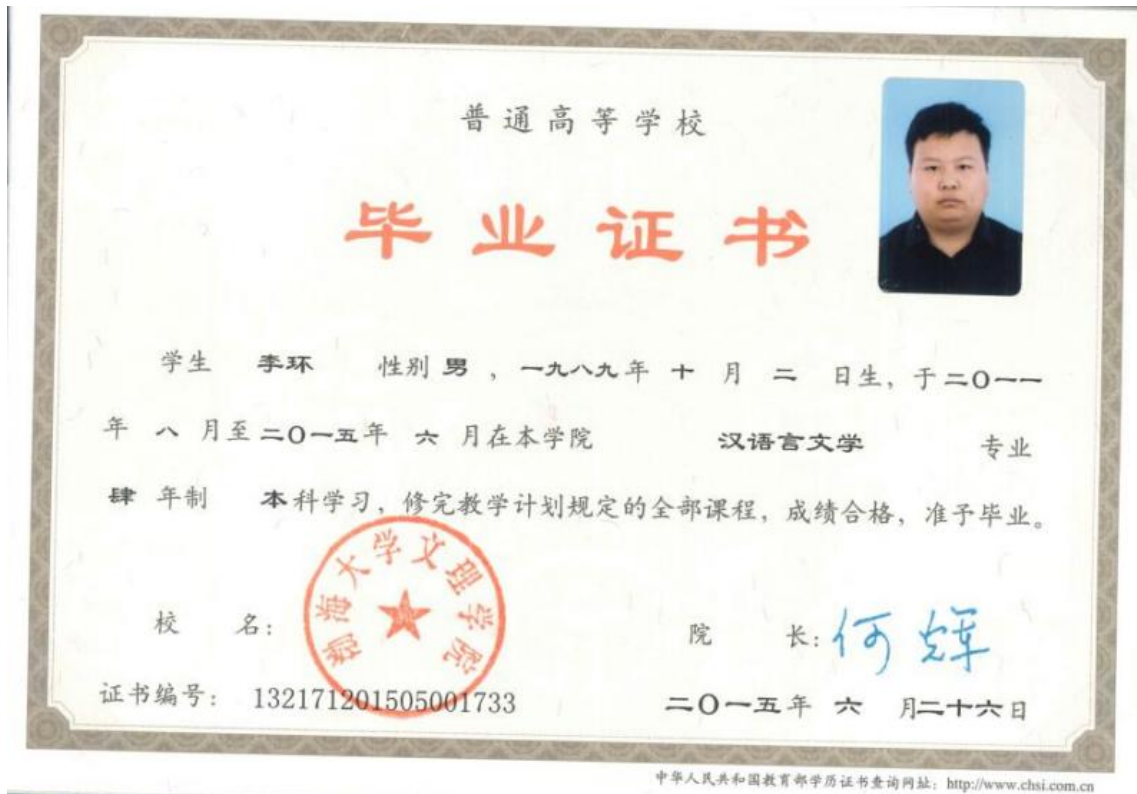 普通高等学校
毕业证书
学生 李环 性别 男 ，一九八九年 十 月 二 日生，于二〇一一
年 八 月至二〇一五年 六 月在本学院 汉语言文学 专业
肆 年制 本科学习，修完教学计划规定的全部课程，成绩合格，准予毕业。
渤海大学文理学院
校 名： 院 长：何辉
证书编号： 132171201505001733 二〇一五年 六 月二十六日
中华人民共和国教育部学历证书查询网址：http://www.chsi.com.cn